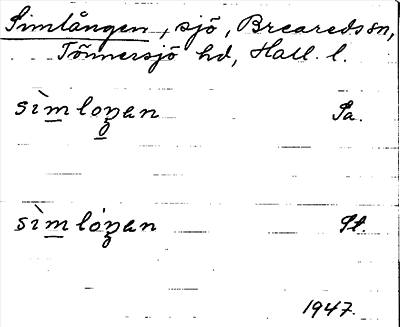 Simlången, sjö, Breareds sn,
Tönnersjö hd, Hall. l.
sìmloŋan Sa.
sìmlóŋan St.
1947.